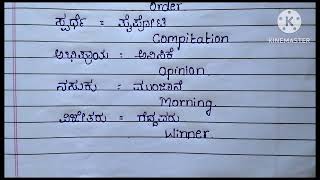 Order
ಸ್ಪರ್ಧೆ = ಪೈಪೋಟಿ
Compitation
KINEMASTER
ಅಭಿಪ್ರಾಯ = ಅನಿಸಿಕೆ
Opinion.
ನಸುಕು = ಮುಂಜಾನೆ
Morning.
ವಿಜೇತರು = ಗೆದ್ದವರು
Winner.